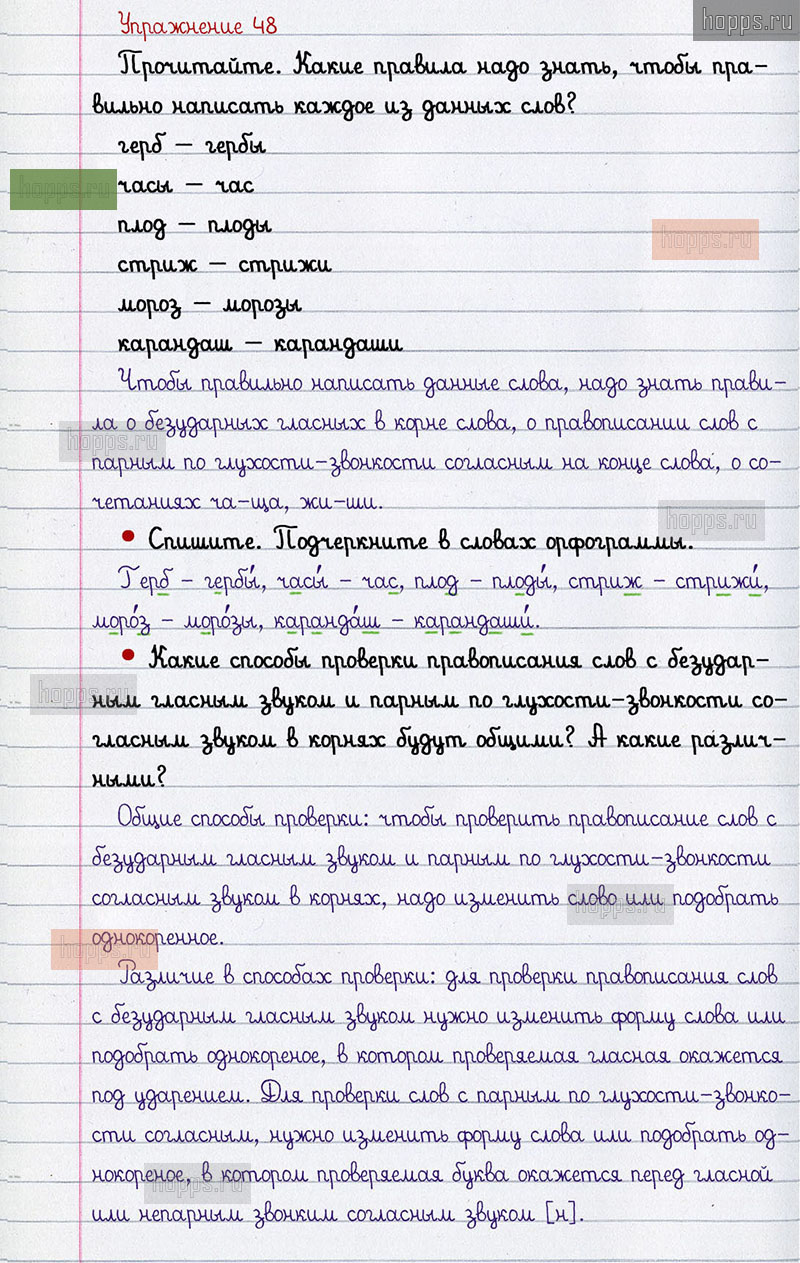 hopps.ru
Упражнение 48
Прочитайте. Какие правила надо знать, чтобы пра-
вильно написать каждое из данных слов?
герб – гербы
hopps.ru
часы – час
плод – плоды
hopps.ru
стриж – стрижи
мороз – морозы
карандаш – карандаши
Чтобы правильно написать данные слова, надо знать прави-
ла о безударных гласных в корне слова, о правописании слов с
hopps.ru
парным по глухости-звонкости согласным на конце слова, о со-
четаниях ча-ща, жи-ши.
hopps.ru
• Спишите. Подчеркните в словах орфограммы.
Герб – гербы́, часы́ – час, плод – плоды́, стриж – стрижи́,
моро́з – моро́зы, каранда́ш – карандаши́.
• Какие способы проверки правописания слов с безудар-
hopps.ru
ным гласным звуком и парным по глухости-звонкости со-
гласным звуком в корнях будут общими? А какие различ-
ными?
Общие способы проверки: чтобы проверить правописание слов с
безударным гласным звуком и парным по глухости-звонкости
согласным звуком в корнях, надо изменить слово или подобрать
hopps.ru
однокоренное.
hopps.ru
Различие в способах проверки: для проверки правописания слов
с безударным гласным звуком нужно изменить форму слова или
подобрать однокореное, в котором проверяемая гласная окажется
под ударением. Для проверки слов с парным по глухости-звонко-
сти согласным, нужно изменить форму слова или подобрать од-
нокореное, в котором проверяемая буква окажется перед гласной
hopps.ru
или непарным звонким согласным звуком [н].